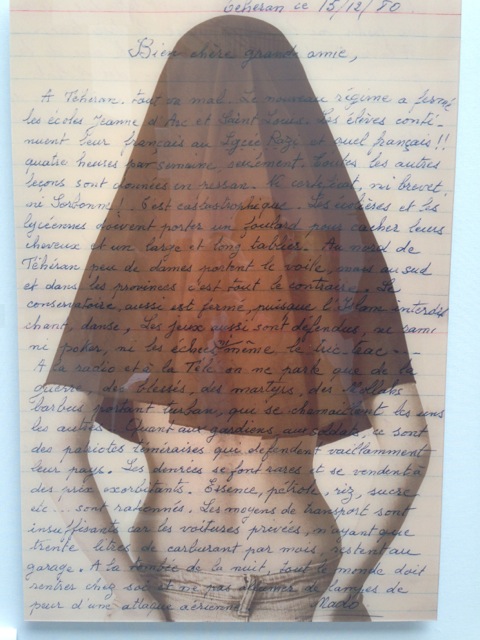 Téhéran le 15/12/80
Bien chère grande amie,
A Téhéran tout va mal. Le nouveau régime a fermé
les écoles Jeanne d'Arc et Saint Louis. Les élèves conti-
nuent leur français au Lycée Razi et quel français!!
quatre heures par semaine seulement. Toutes les autres
leçons sont données en persan. Ni certificat, ni brevet,
ni Sorbonne! C'est catastrophique. Les écolières et les
lycéennes doivent porter un foulard pour cacher leurs
cheveux et un large et long tablier. Au nord de
Téhéran peu de dames portent le voile, mais au sud
et dans les provinces c'est tout le contraire. Le
conservatoire, aussi est fermé, puisque l'Islam interdit
chant, danse, Les jeux aussi sont défendus, ni rami
ni poker, ni les échecs même, le tric-trac...
A la radio et à la Télé on ne parle que de la
guerre, des blessés, des martyrs, des Mollahs
barbus portant turban, qui se chamaillent les uns
les autres. Quant aux gardiens, aux soldats, ce sont
des patriotes téméraires qui défendent vaillamment
leur pays. Les denrées se font rares et se vendent à
des prix exorbitants. Essence, pétrole, riz, sucre
etc... sont rationnés. Les moyens de transport sont
insuffisants car les voitures privées, n'ayant que
trente litres de carburant par mois, restent au
garage. A la tombée de la nuit, tout le monde doit
rentrer chez soi et ne pas allumer de lampes de
peur d'une attaque aérienne.